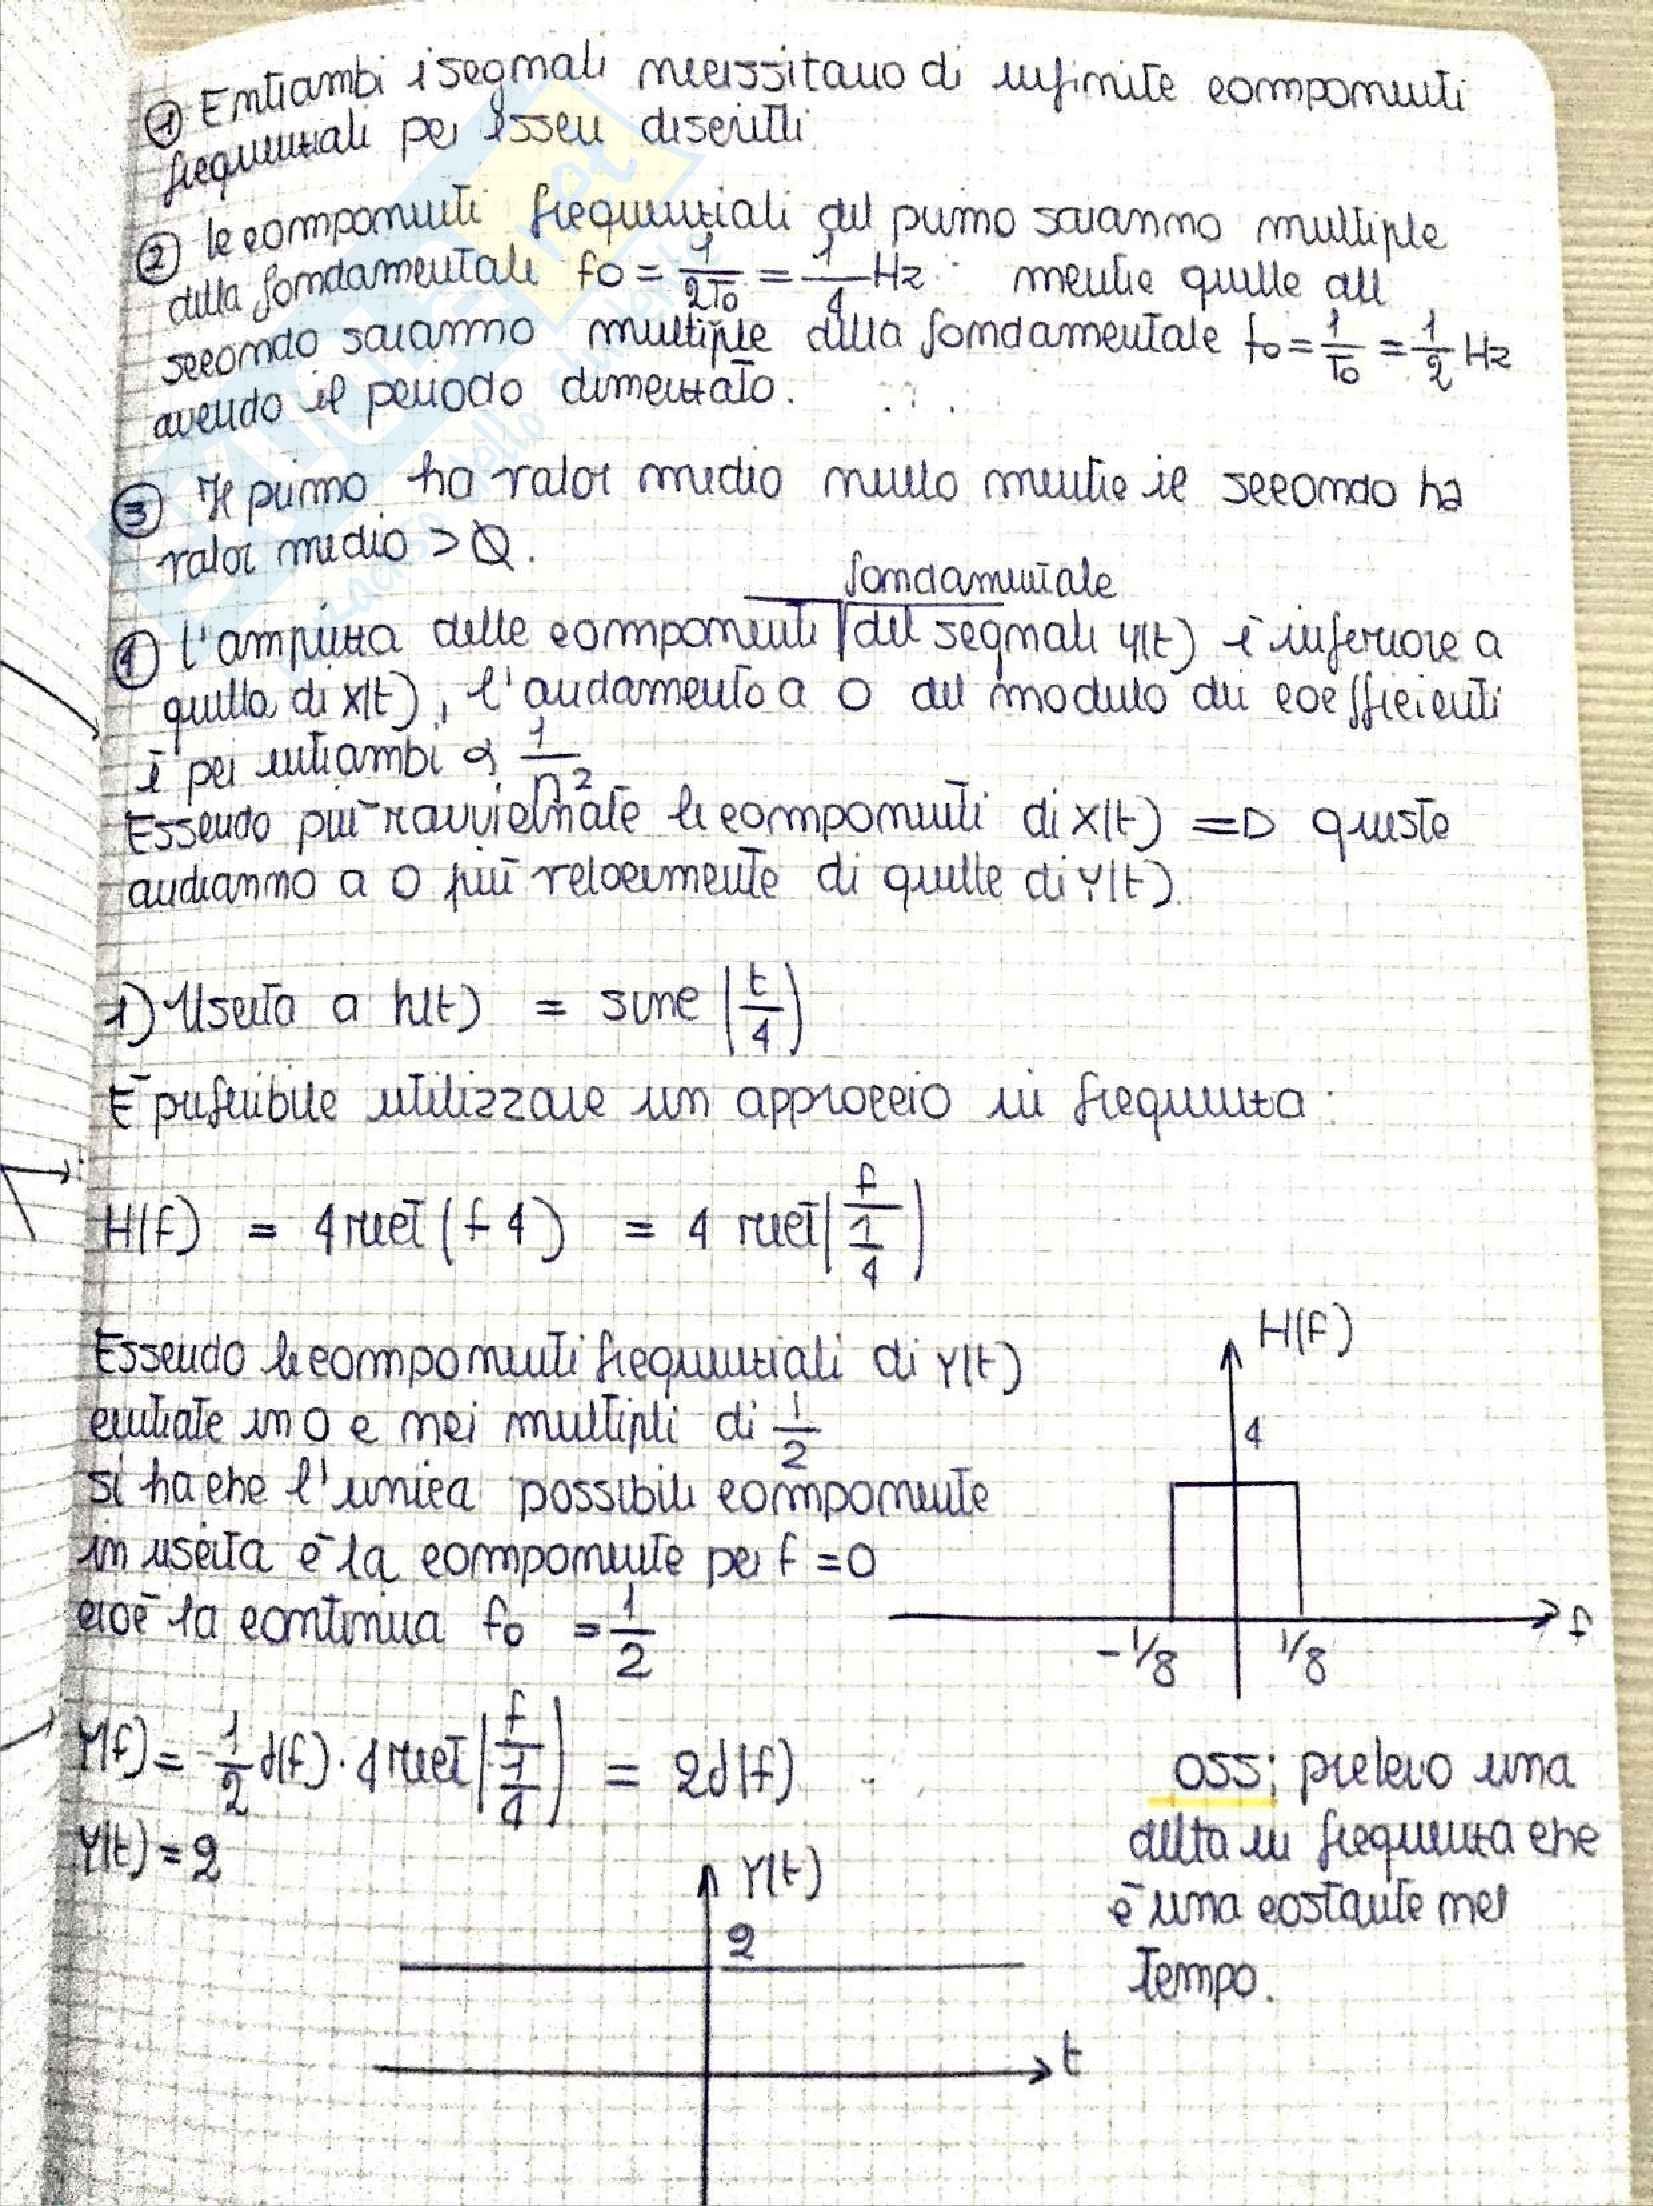 ① Entrambi i segnali necessitano di infinite componenti
frequenziali per essere descritti
② le componenti frequenziali del primo saranno multiple
della fondamentale f0 = 1/2T0 = 1/4 Hz mentre quelle del
secondo saranno multiple della fondamentale f0 = 1/T0 = 1/2 Hz
avendo il periodo dimezzato.
③ Il primo ha valor medio nullo mentre il secondo ha
valor medio > 0.
fondamentale
④ l'ampiezza delle componenti del segnale y(t) è inferiore a
quella di x(t), l'andamento a 0 del modulo dei coefficienti
è per entrambi α 1/n²
Essendo più ravvicinate le componenti di x(t) => queste
andranno a 0 più velocemente di quelle di Y(t).
1) Uscita a h(t) = sinc (t/4)
È preferibile utilizzare un approccio in frequenza:
H(f) = 4 rect (f 4) = 4 rect (f/(1/4))
H(f)
Essendo le componenti frequenziali di Y(t)
centrate in 0 e nei multipli di 1/2
4
si ha che l'unica possibile componente
in uscita è la componente per f = 0
cioè la continua f0 = 1/2
f
-1/8 1/8
Y(f) = 1/2 d(f) · 4 rect (f/(1/4)) = 2d(f)
Y(t) = 2
oss: prelevo una
delta in frequenza che
è una costante nel
tempo.
Y(t)
2
t